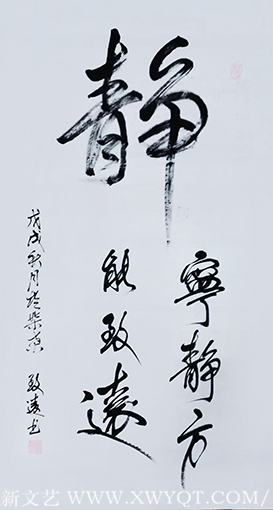 静
寧静方
能致遠
戊戌秋月於北京
致遠书
新文艺 WWW.XWYQT.COM